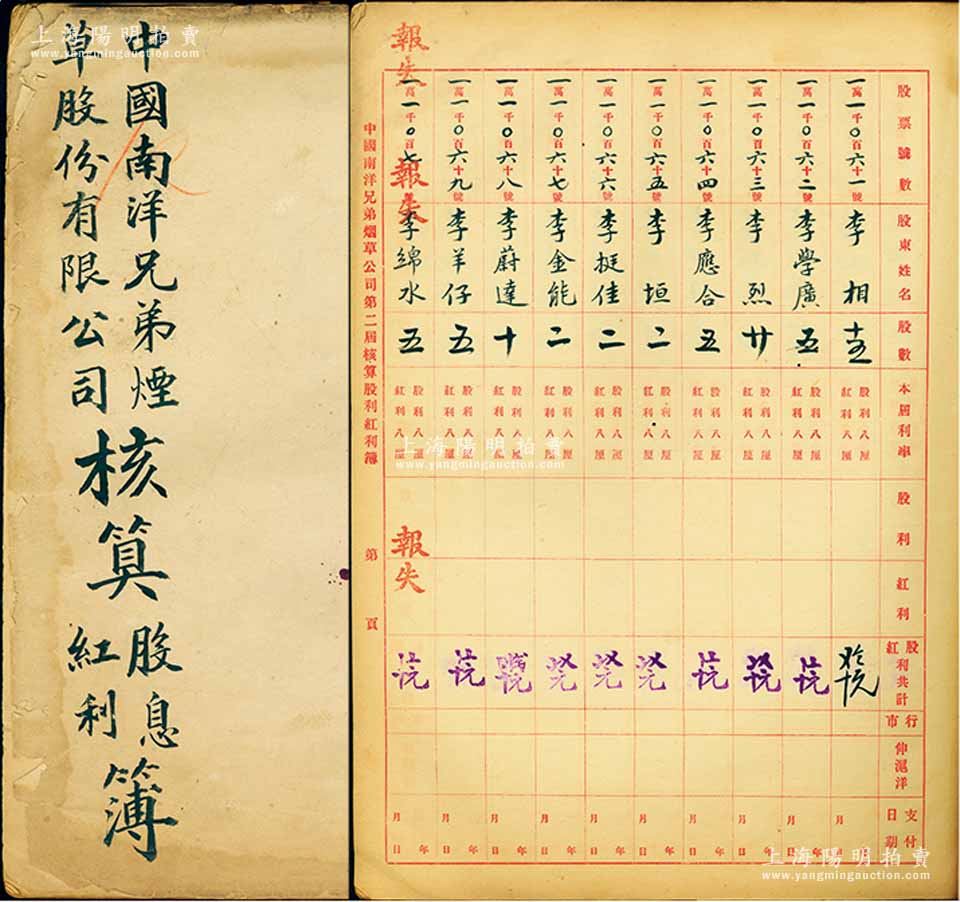 上海陽明拍賣
www.yangmingauction.com
中國南洋兄弟煙
草股份有限公司
核算
股息
紅利
簿
報失
股票號數
股東姓名
股數
本屆利率
股利
紅利
股利紅利共計
行市
伸滬洋
支付日期
一萬一千0百六十一號
李相
股利八厘
紅利八厘
月
年
日
一萬一千0百六十二號
李學廣
五
股利八厘
紅利八厘
月
年
日
一萬一千0百六十三號
李烈
廿
股利八厘
紅利八厘
月
年
日
一萬一千0百六十四號
李應合
五
股利八厘
紅利八厘
月
年
日
一萬一千0百六十五號
李垣
二
股利八厘
紅利八厘
月
年
日
一萬一千0百六十六號
李挺佳
二
股利八厘
紅利八厘
月
年
日
一萬一千0百六十七號
李金能
二
股利八厘
紅利八厘
月
年
日
一萬一千0百六十八號
李蔚達
十
股利八厘
紅利八厘
月
年
日
一萬一千0百六十九號
李羊仔
五
股利八厘
紅利八厘
月
年
日
一萬一千0百七
報失
李綿水
五
股利八厘
紅利八厘
報失
月
年
日
中國南洋兄弟烟草公司第二屆核算股利紅利簿
第
頁
上海陽明拍賣
www.yangmingauction.com
上海陽明拍賣
www.yangmingauction.com